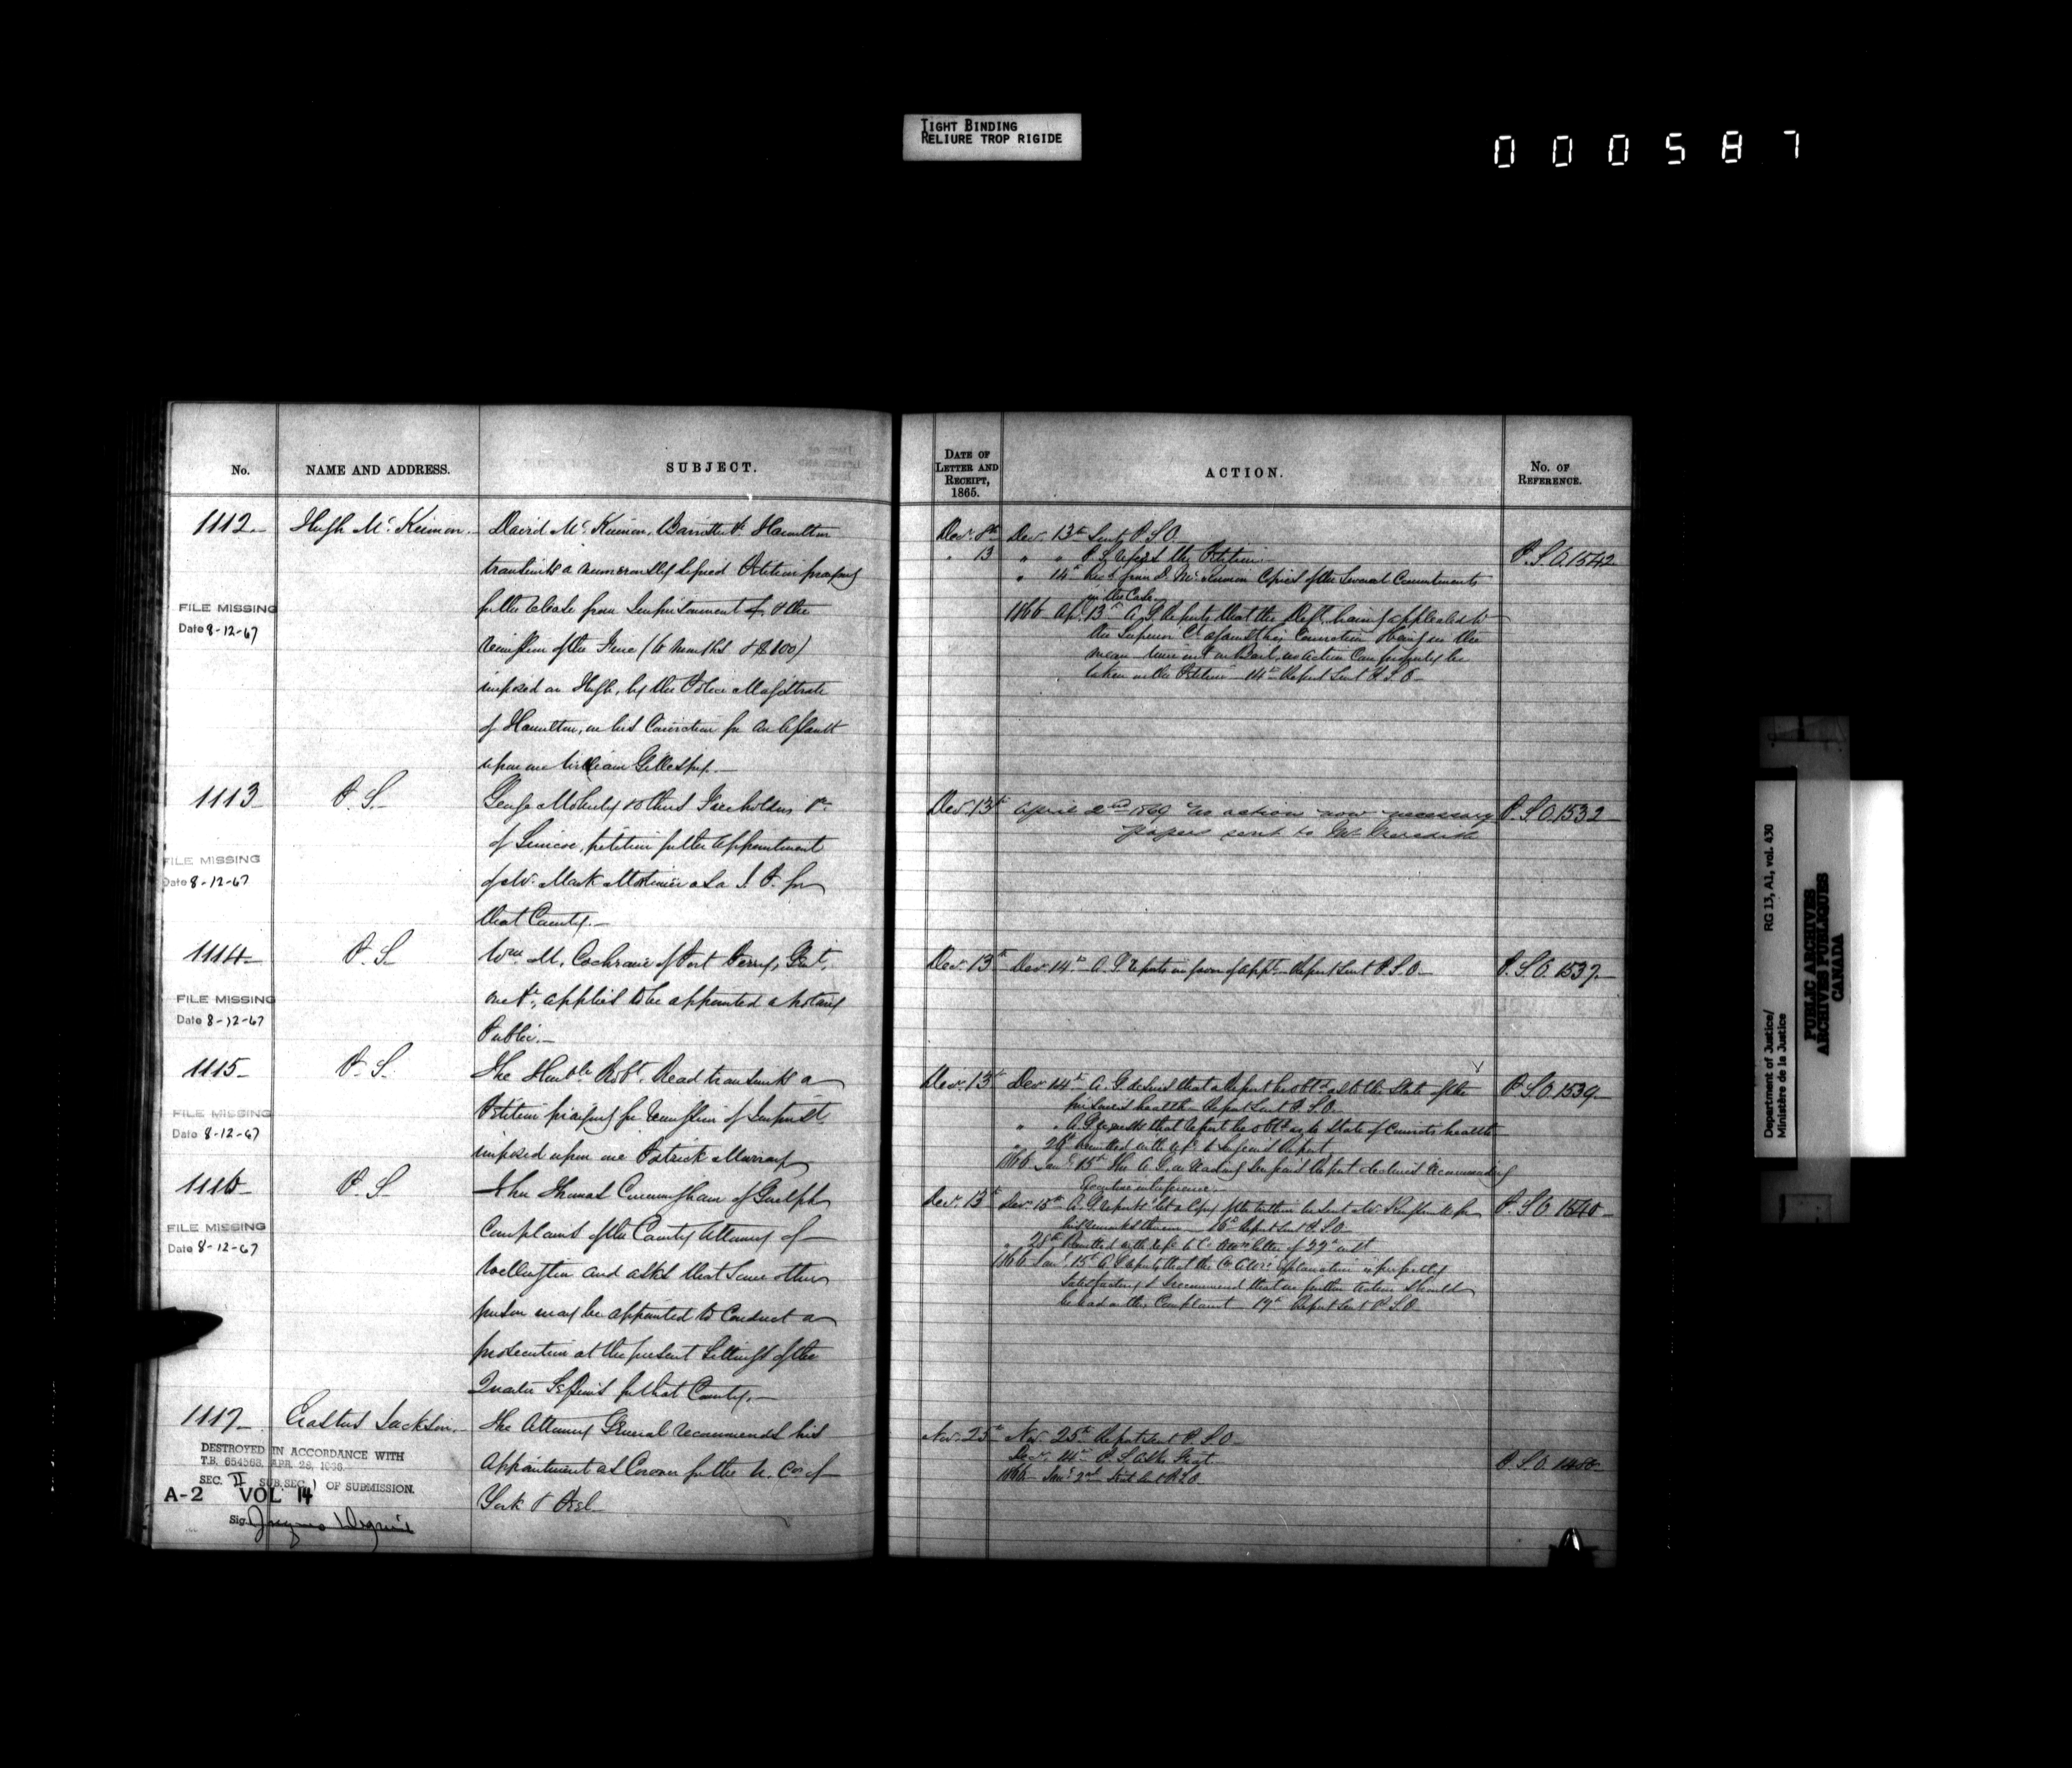 TIGHT BINDING
RELIURE TROP RIGIDE
000587
No.
NAME AND ADDRESS.
SUBJECT.
1112
Hugh McKinnon
David McKinnon, Barrister &c Hamilton
transmits a numerously signed Petition praying
for the release from Imprisonment of, & the
remission of the Fine (6 months & $100)
imposed on Hugh, by the Police Magistrate
of Hamilton, on his Conviction for an assault
upon one William Gillespy.
FILE MISSING
Date 8-12-67
1113
P. S.
George Moberly & others Freeholders &c
of Simcoe, petition for the appointment
of Mr. Mark Mortimer as a J. P. for
that County.
FILE MISSING
Date 8-12-67
1114
P. S.
Wm. M. Cochrane of Port Perry, Gent.,
one &c, applies to be appointed a Notary
Public.
FILE MISSING
Date 8-12-67
1115
P. S.
The Honble Robt. Read transmits a
Petition praying for remission of Imprist.
imposed upon one Patrick Murray
FILE MISSING
Date 8-12-67
1116
P. S.
Thomas Cunningham of Guelph
Complains of the County Attorney of
Wellington and asks that some other
person may be appointed to Conduct a
prosecution at the present Sittings of the
Quarter Sessions for that County.
FILE MISSING
Date 8-12-67
1117
Erastus Jackson
The Attorney General recommends his
Appointment as Coroner for the U. Cos of
York & Peel
DESTROYED IN ACCORDANCE WITH
T.B. 654563, APR. 28, 1936.
SEC. II SUB.SEC. 1 OF SUBMISSION.
A-2 VOL 14
Sig.
DATE OF
LETTER AND
RECEIPT,
1865.
ACTION.
No. OF
REFERENCE.
Decr. 8th Decr. 13th Sent P.S.O.
" 13 " " P.S. refers the Petition
P.S.O. 1542
" 14th Recd. from D. McKinnon Copies of the several Commitments
in the Case.
1866 Apl. 13th A.G. reports that the Deft. having appealed to
the Superior Ct. against his Conviction & being in the
mean time out on Bail, no action can properly be
taken on the Petition 14th Report Sent P.S.O.
Decr. 13th April 2nd 1869 No action now necessary
P.S.O. 1532
papers sent to Mr. Meredith
Decr. 13th Decr. 14th A.G. reports in favor of appt. Report Sent P.S.O.
P.S.O. 1537
Decr. 13th Decr. 14th A.G. desires that a Report be obtd. as to the State of the
P.S.O. 1539
prisoner's health Report Sent P.S.O.
" " A.G. requests that Report be obtd. as to State of Convict's health
" 26th Remitted with refce. to Surgeon's Report
1866 Jany. 15th The A.G. on reading Surgeon's Report declines recommending
Executive interference.
Decr. 13th Decr. 15th A.G. reports that a Copy of the within be sent Mr. for
P.S.O. 1540
his remarks thereon 16th Report Sent P.S.O.
" 28th Remitted with refce. to Co. Atty's letter of 22nd inst
1866 Jany. 15th A.G. reports that the Co. Atty's explanation is perfectly
satisfactory & recommend that no further action should
be had on this Complaint 17th Report Sent P.S.O.
Nov. 25th Nov. 25th Report sent P.S.O.
Decr. 14th P.S. asks
P.S.O. 1450
1866 Jany. 2nd Sent P.S.O.
RG 13, A1, vol. 430
Department of Justice/
Ministère de la Justice
PUBLIC ARCHIVES
ARCHIVES PUBLIQUES
CANADA